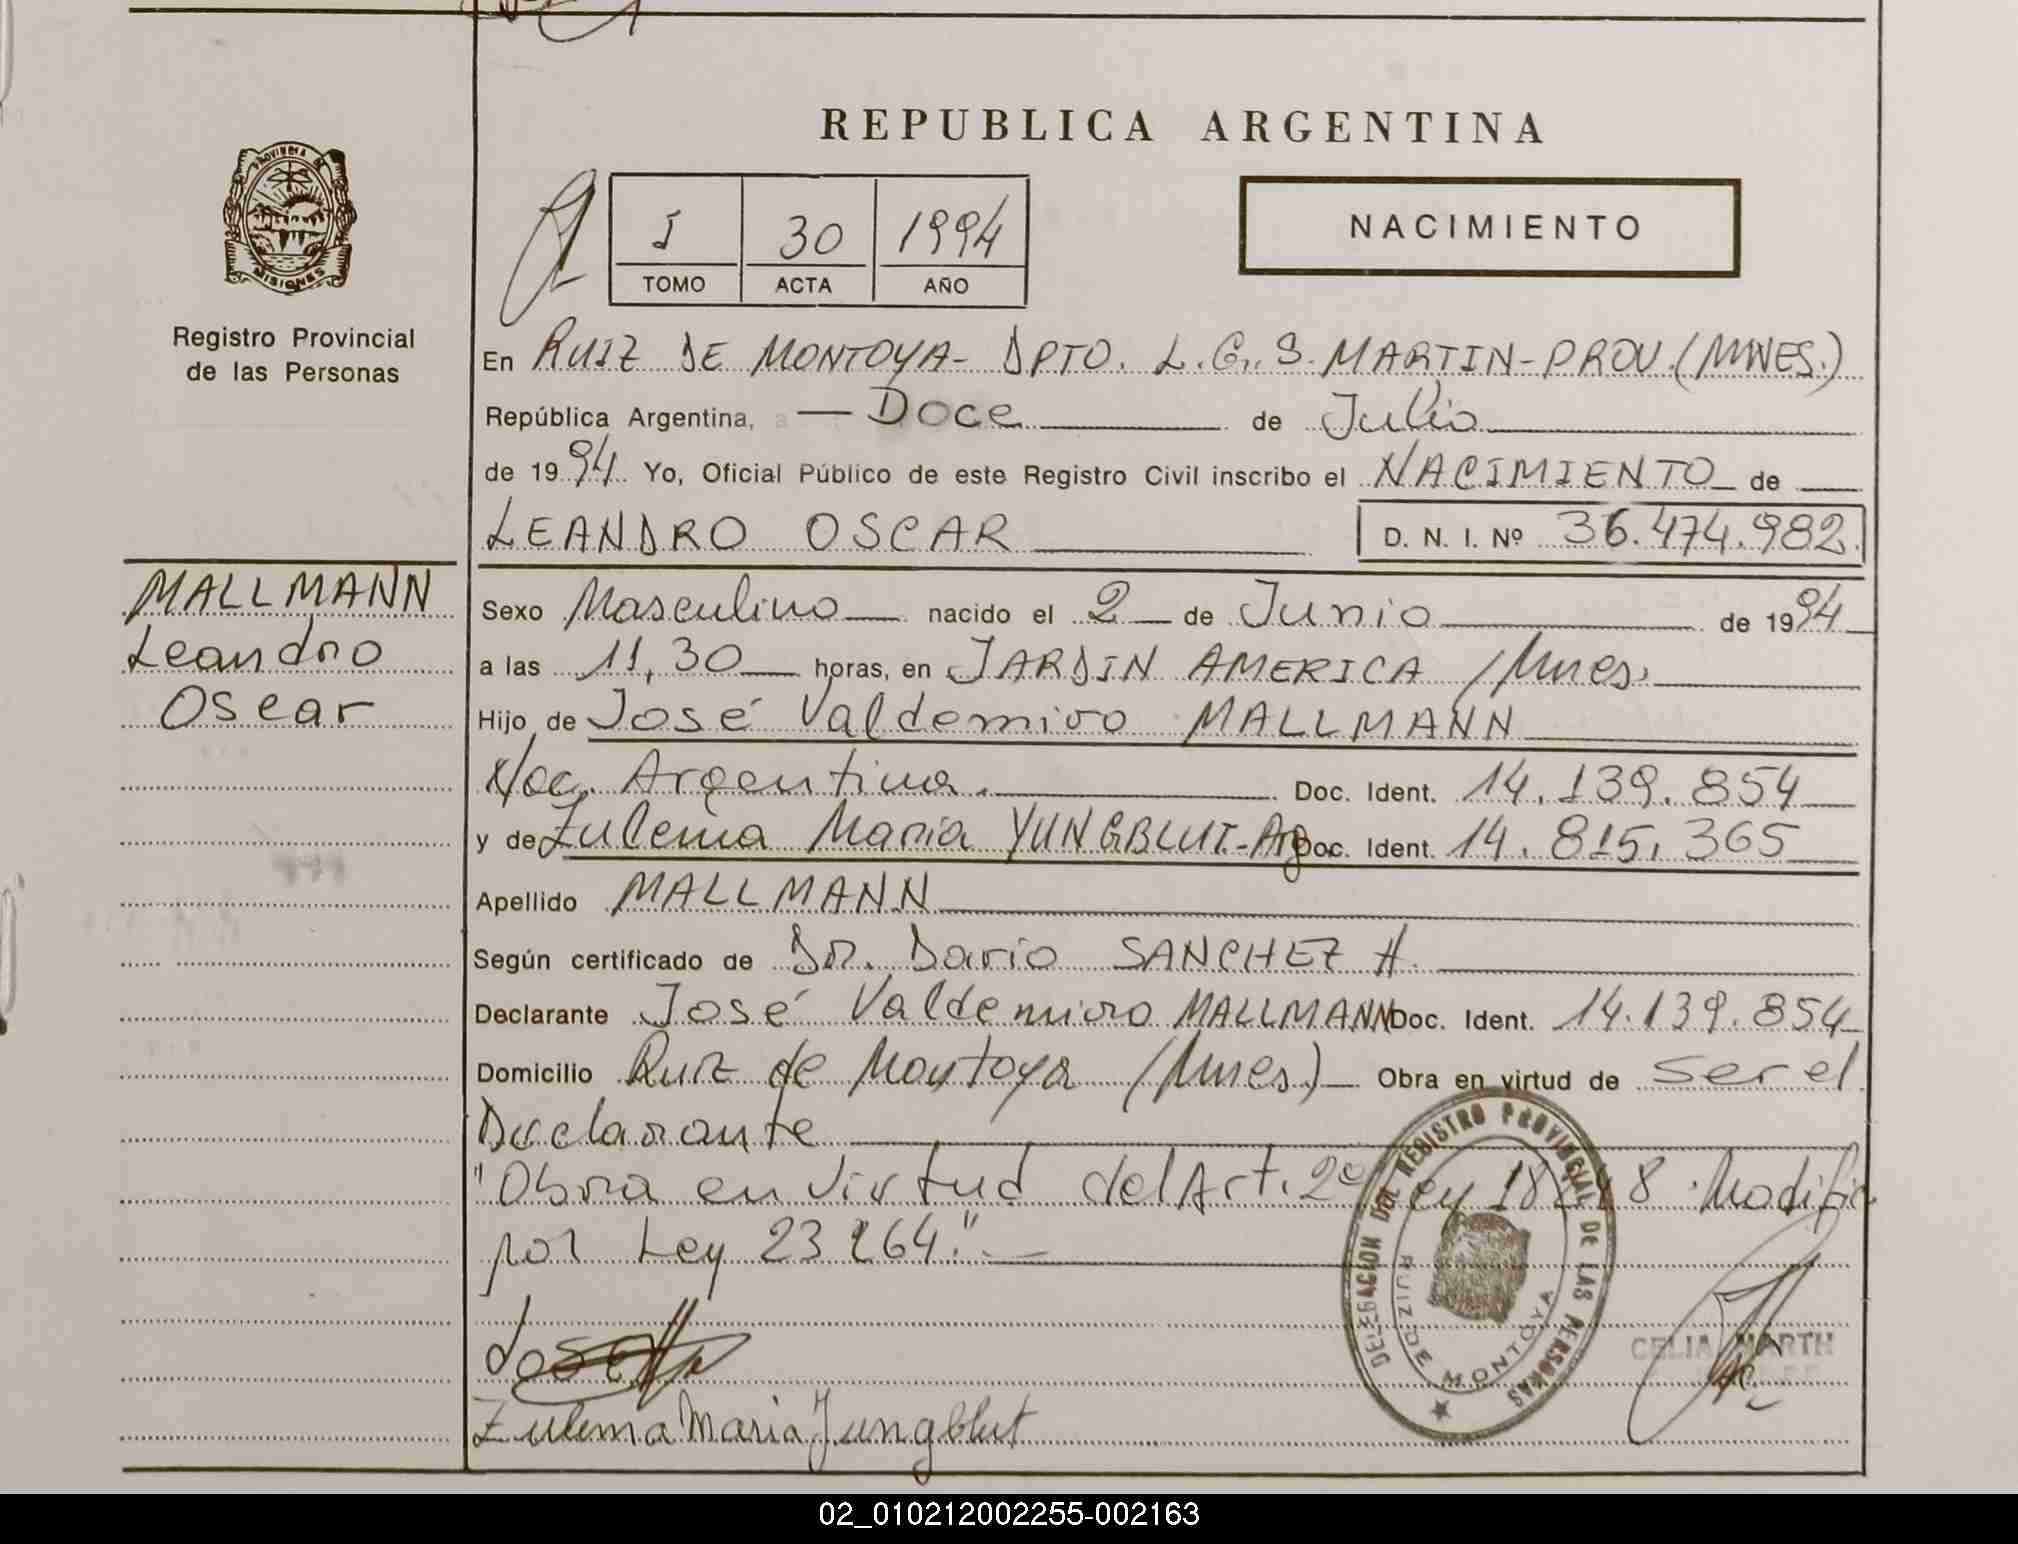 REPUBLICA ARGENTINA
PROVINCIA DE
MISIONES
Registro Provincial
de las Personas
I 30 1994
TOMO ACTA AÑO
NACIMIENTO
En RUIZ DE MONTOYA- DPTO. L.G.S. MARTIN-PROV.(MNES.)
República Argentina, a — Doce de Julio
de 1994 Yo, Oficial Público de este Registro Civil inscribo el NACIMIENTO de
LEANDRO OSCAR D. N. I. Nº 36.474.982
MALLMANN
Leandro
Oscar
Sexo Masculino nacido el 2 de Junio de 1994
a las 11,30 horas, en JARDIN AMERICA /Mnes.
Hijo de José Valdemiro MALLMANN
Nac. Argentina. Doc. Ident. 14.139.854
y de Zulema Maria YUNGBLUT-Arg. Doc. Ident. 14.815.365
Apellido MALLMANN
Según certificado de Dr. Dario SANCHEZ H.
Declarante José Valdemiro MALLMANN Doc. Ident. 14.139.854
Domicilio Ruiz de Montoya (Mnes.) Obra en virtud de ser el
Declarante
"Obra en virtud del Art. 2º Ley 18248 Modific
por Ley 23264."
DELEGACION DEL REGISTRO PROVINCIAL DE LAS PERSONAS
RUIZ DE MONTOYA
José
CELIA MARTH
Zulema Maria Jungblut
02_010212002255-002163